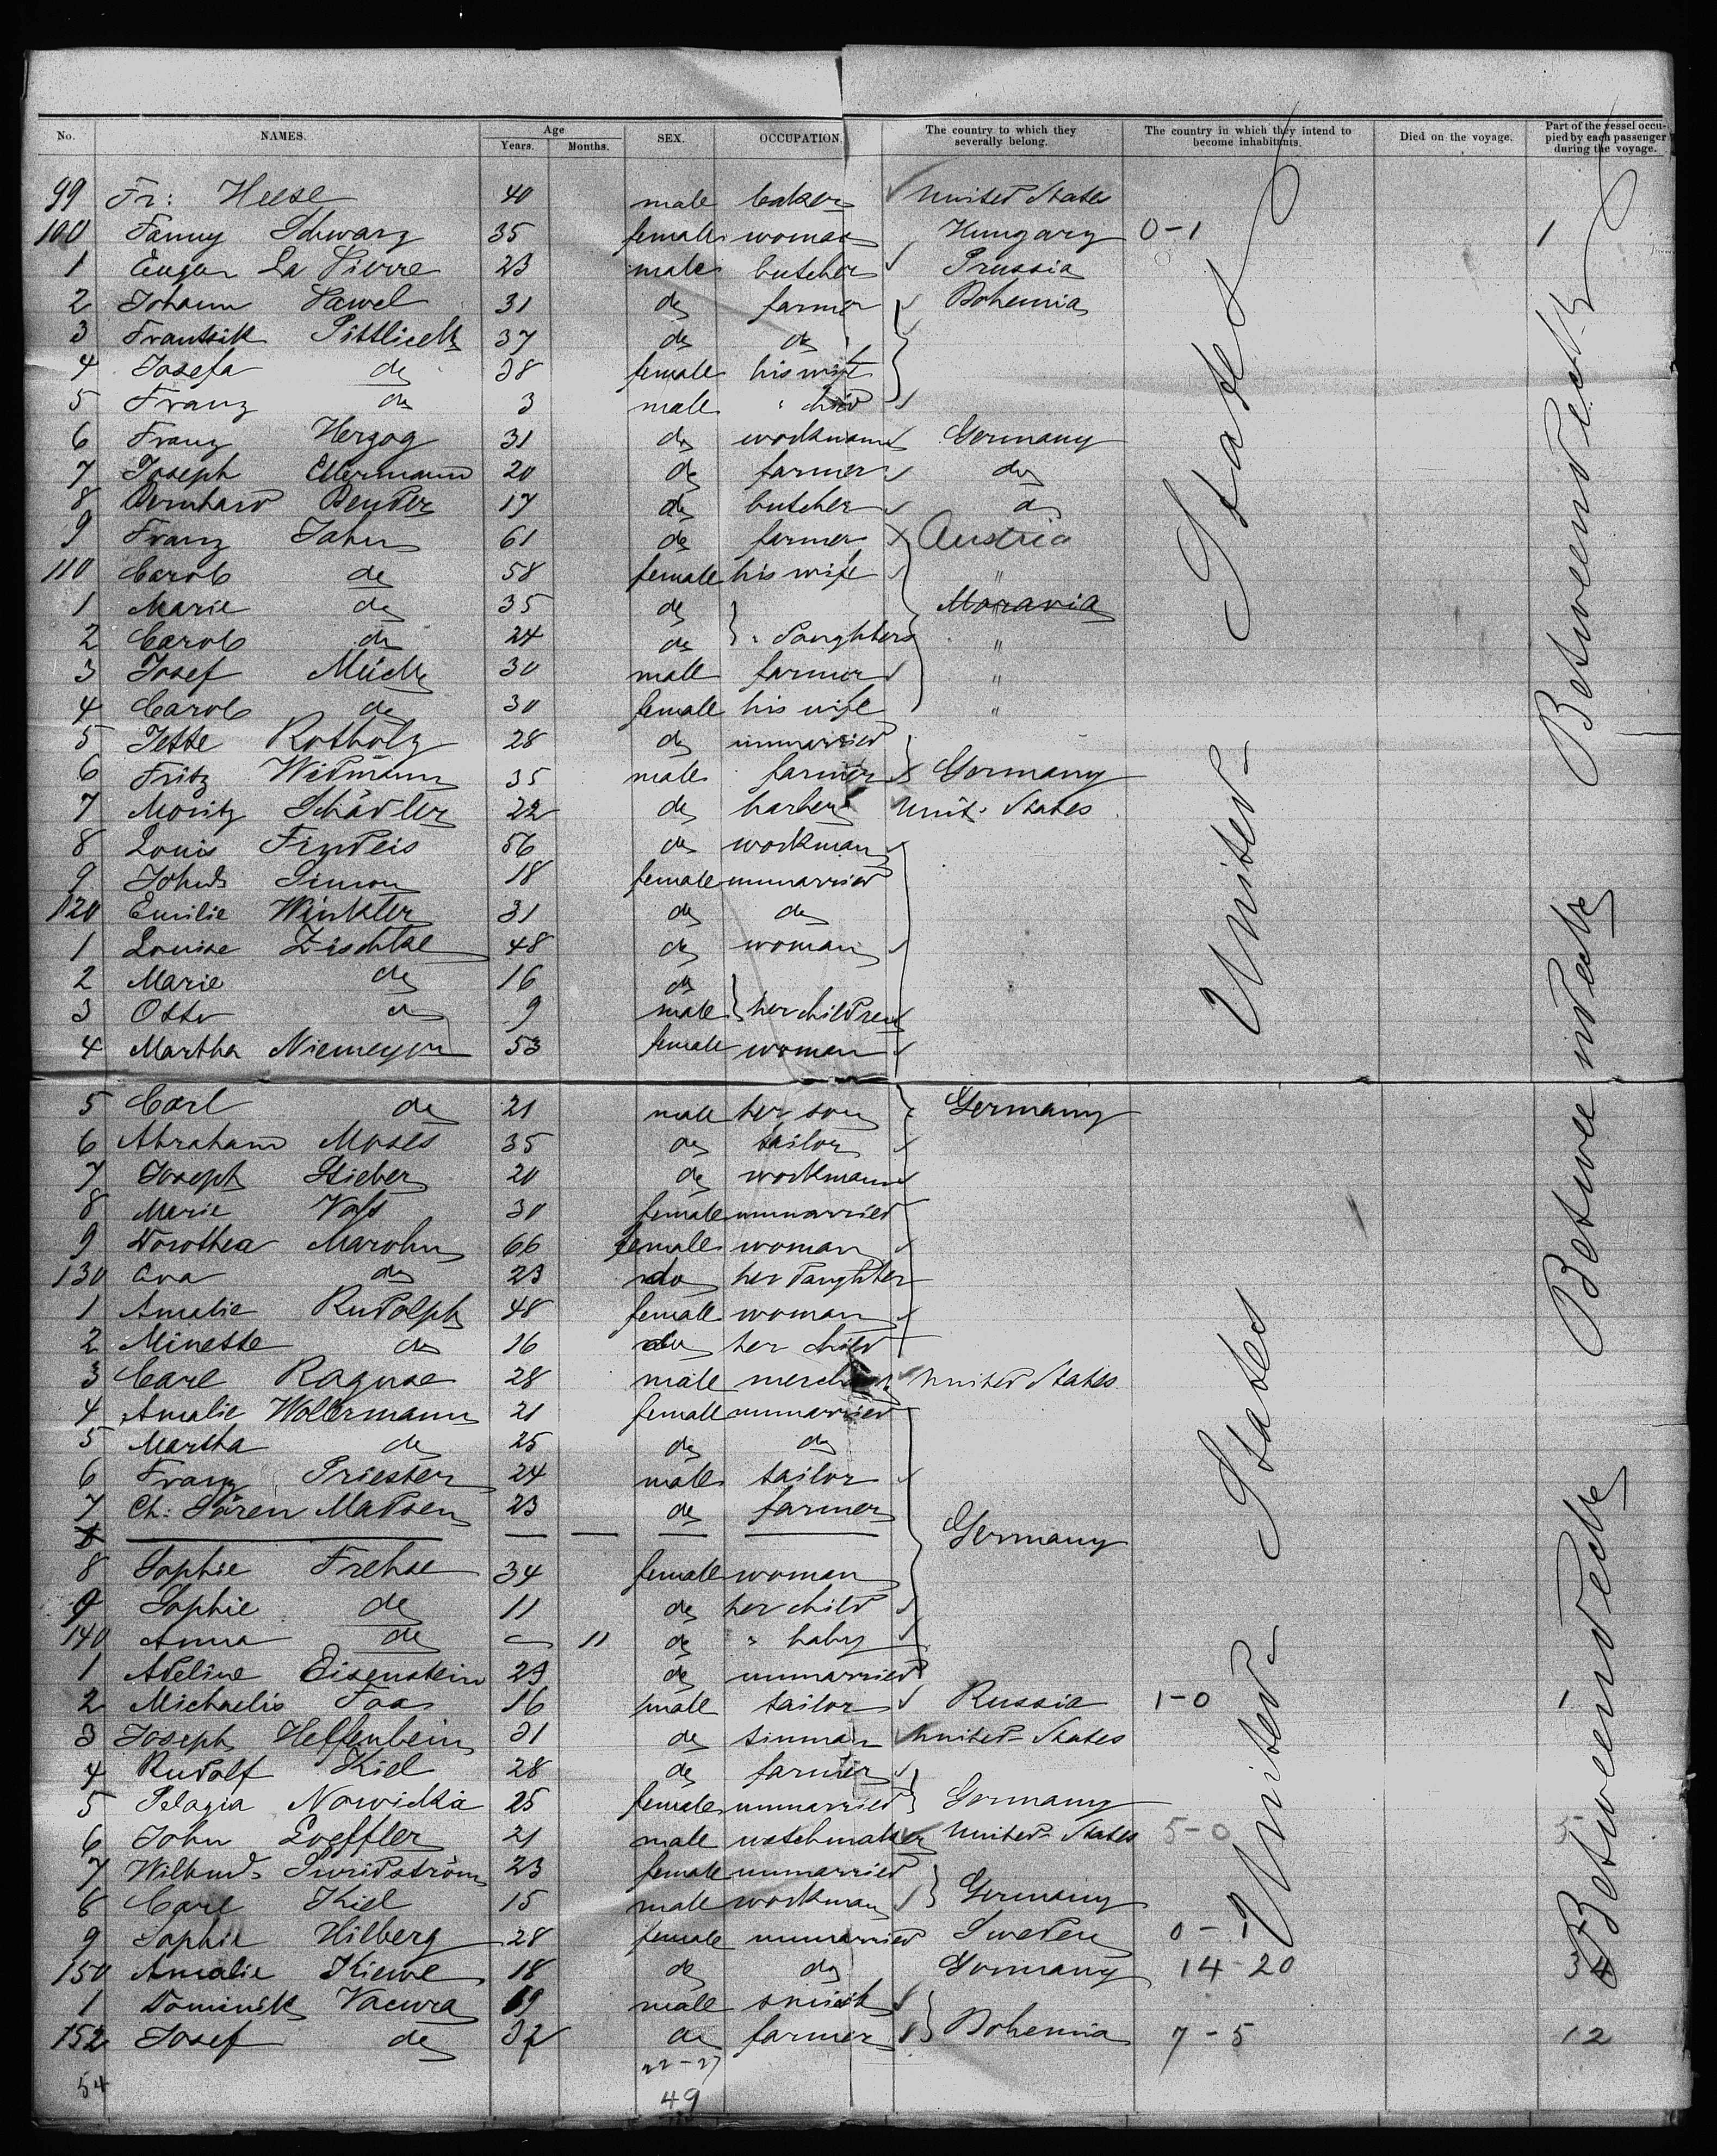 No. NAMES. Age Years. Months. SEX. OCCUPATION. The country to which they severally belong. The country in which they intend to become inhabitants. Died on the voyage. Part of the vessel occupied by each passenger during the voyage.
99 Fr: Heese 40 male baker United States
100 Fanny Schwarz 35 female woman Hungary 0-1 1
1 Eugen La Pierre 23 male butcher Prussia
2 Johann Pawel 31 do farmer Bohemia
3 Frantisik Pittlicek 37 do do
4 Josefa do 38 female his wife
5 Franz do 3 male " child
6 Franz Herzog 31 do workman Germany
7 Joseph Ellermann 20 do farmer do
8 Bernhard Bender 17 do butcher do
9 Franz Jahn 61 do farmer Austria
110 Carol do 58 female his wife "
1 Marie do 35 do Moravia
2 Carol do 24 do " daughters "
3 Josef Mück 30 male farmer "
4 Carol do 30 female his wife "
5 Jette Rotholz 28 do unmarried
6 Fritz Widmann 35 male farmer Germany
7 Moritz Schädler 22 do barber Unit. States
8 Louis Findeis 56 do workman
9 Johnd Simon 18 female unmarried
120 Emilie Winkler 31 do do
1 Louise Zischke 48 do woman
2 Marie do 16 do
3 Otto do 9 male her children
4 Martha Niemeyer 53 female woman
5 Carl do 21 male her son Germany
6 Abraham Moses 35 do tailor
7 Joseph Stieber 20 do workman
8 Marie Voss 30 female unmarried
9 Dorothea Marohn 66 female woman
130 Eva do 23 do her daughter
1 Amalie Rudolph 48 female woman
2 Minette do 16 do her child
3 Carl Raguse 28 male merchant United States
4 Amalie Wollermann 21 female unmarried
5 Martha do 25 do do
6 Franz Priester 24 male tailor
7 Ch: Sören Madsen 23 do farmer
Germany
8 Sophie Frehse 34 female woman
9 Sophie do 11 do her child
140 Anna do 11 do " baby
1 Adeline Eisenstein 23 do unmarried
2 Michaelis Faas 16 male tailor Russia 1-0 1
3 Joseph Helfenbein 31 do tinman United States
4 Rudolf Kiel 28 do farmer
5 Pelagia Nowicka 25 female unmarried Germany
6 John Loeffler 21 male watchmaker United States 5-0 5
7 Wilhmd. 23 female unmarried
8 Carl Kiel 15 male workman Germany
9 Sophie Hilberg 28 female unmarried Sweden 0-1
150 Amalie Kiewe 18 do do Germany 14-20 34
1 Dominik Vacura 19 male smith
152 Josef do 32 do farmer Bohemia 7-5 12
54 22-27
49
United States
United States
Betweendeck
Betweendeck